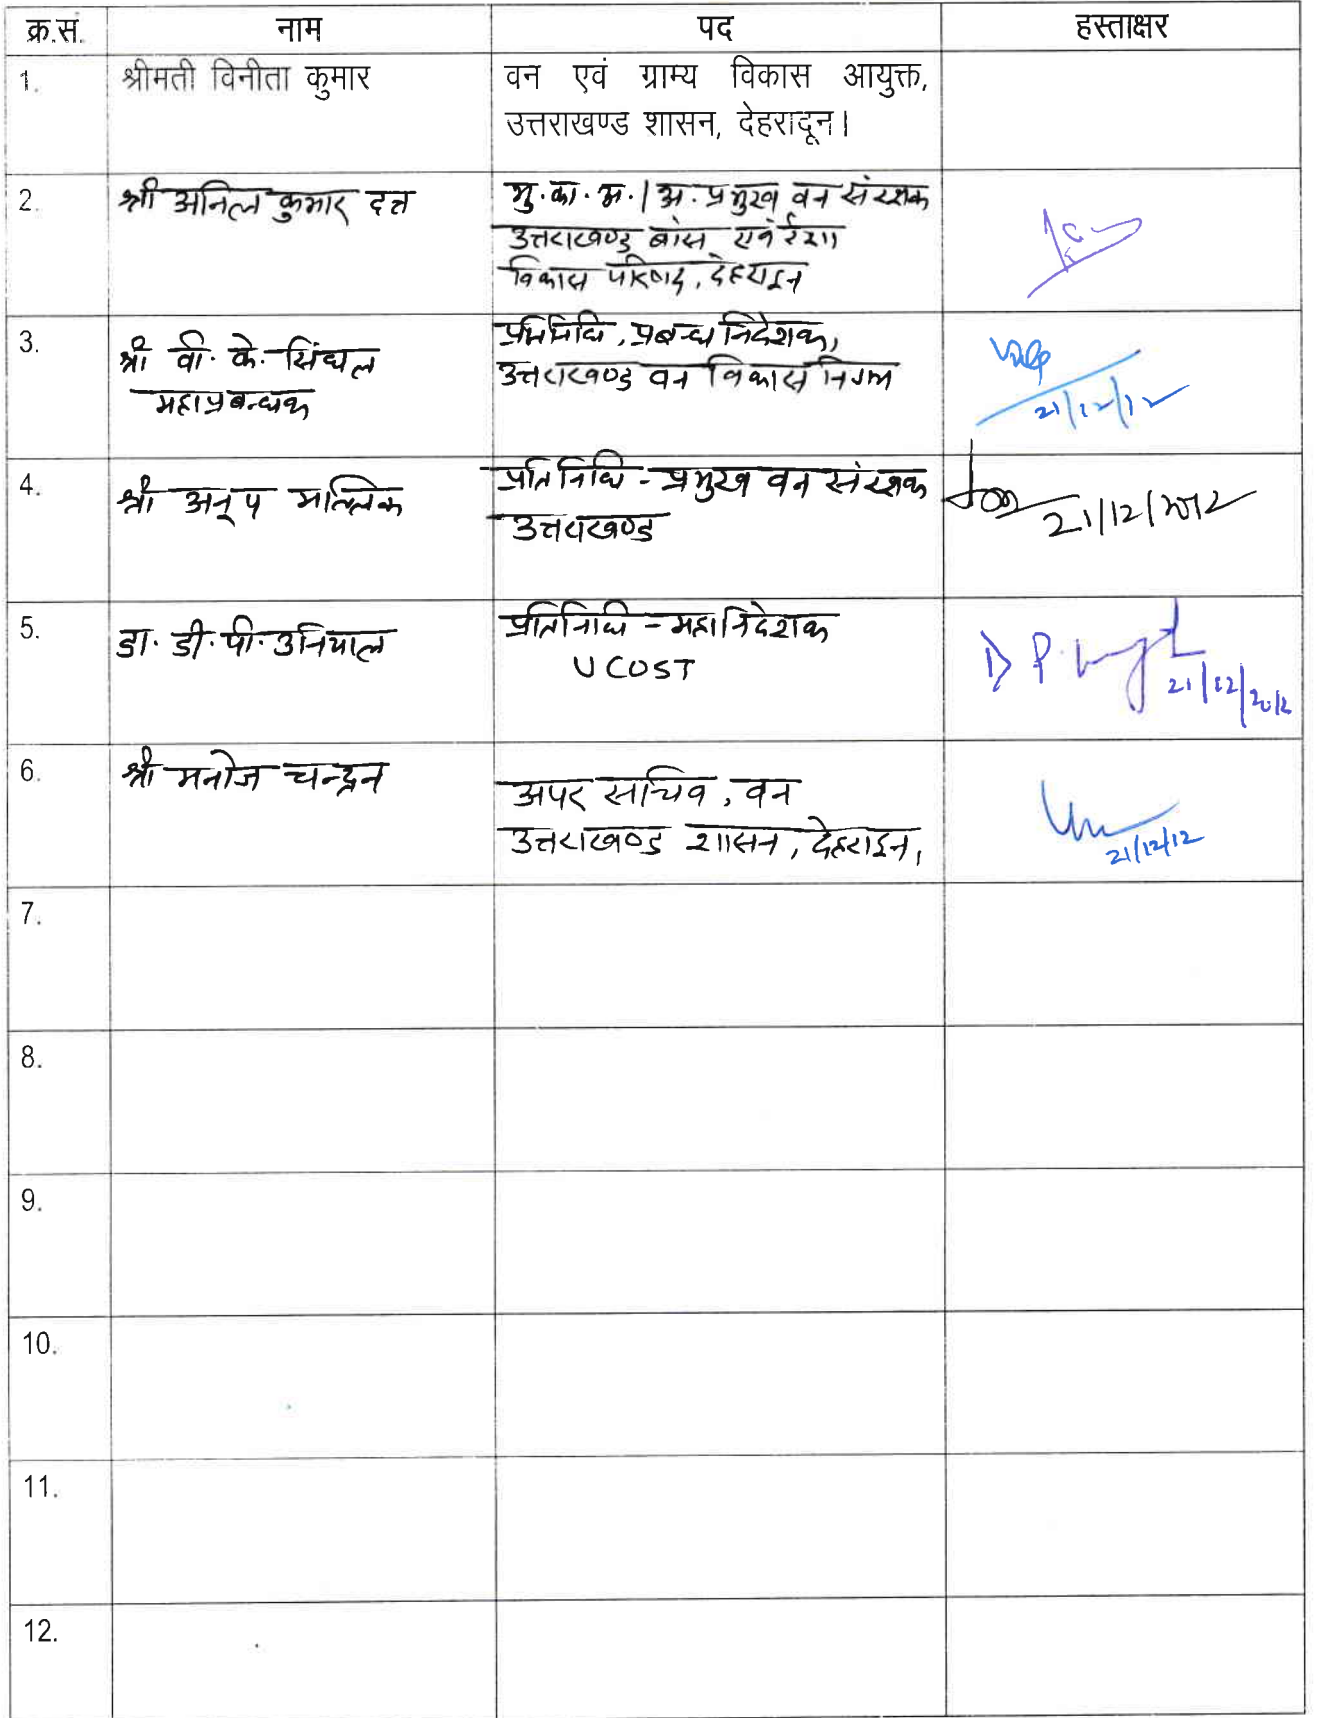 क्र.सं. नाम पद हस्ताक्षर
1. श्रीमती विनीता कुमार वन एवं ग्राम्य विकास आयुक्त,
उत्तराखण्ड शासन, देहरादून।
2. श्री अनिल कुमार दत्त मु.का.अ./अ.प्रमुख वन संरक्षक
उत्तराखण्ड बांस एवं रेशा
विकास परिषद, देहरादून
3. श्री वी.के. सिंघल प्रतिनिधि, प्रबन्ध निदेशक,
महाप्रबन्धक उत्तराखण्ड वन विकास निगम
21/12/12
4. श्री अनूप मल्लिक प्रतिनिधि - प्रमुख वन संरक्षक
उत्तराखण्ड 21/12/2012
5. डा. डी.पी. उनियाल प्रतिनिधि - महानिदेशक
UCOST D P
21/12/2012
6. श्री मनोज चन्द्रन अपर सचिव, वन
उत्तराखण्ड शासन, देहरादून,
21/12/12
7.
8.
9.
10.
11.
12.